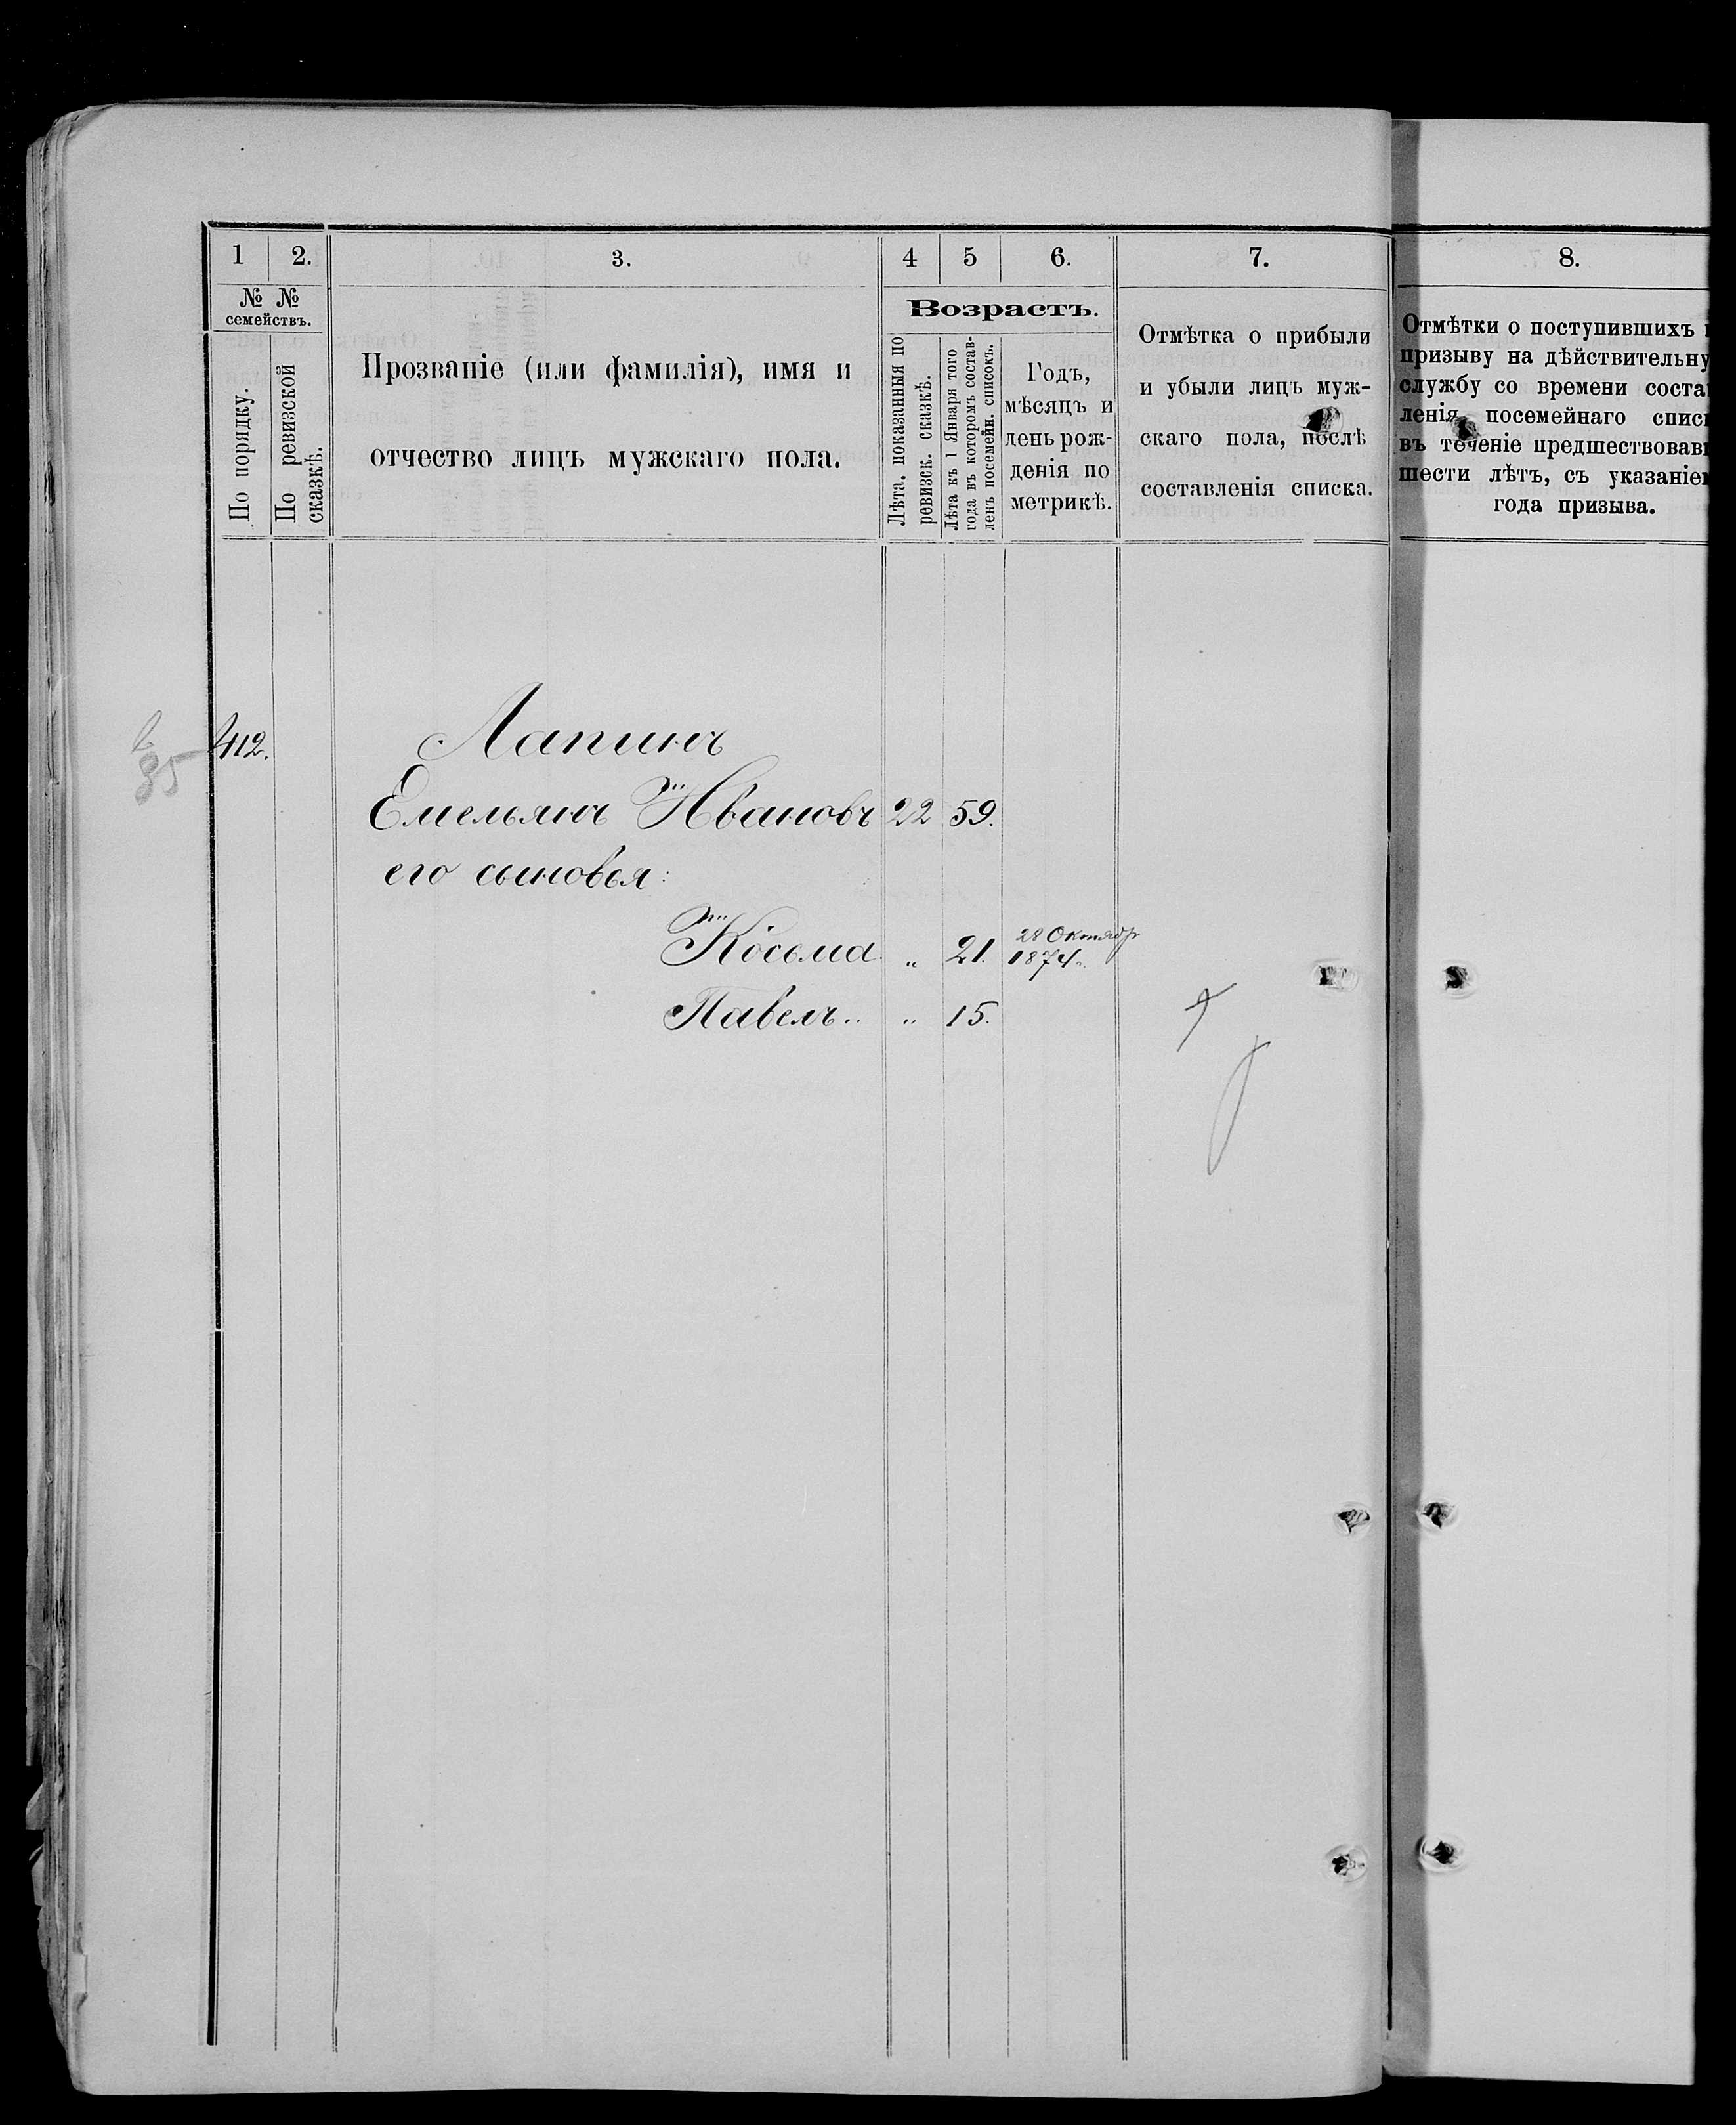 1 2. 3. 4 5 6. 7. 8.
№ № семействъ.
По порядку.
По ревизской сказкѣ.
Прозваніе (или фамилія), имя и
отчество лицъ мужскаго пола.
Возрастъ.
Лѣта, показанныя по
ревизск. сказкѣ.
Лѣта къ 1 Января того
года въ которомъ состав-
ленъ посемейн. списокъ.
Годъ,
мѣсяцъ и
день рож-
денія по
метрикѣ.
Отмѣтка о прибыли
и убыли лицъ муж-
скаго пола, послѣ
составленія списка.
Отмѣтки о поступившихъ
призыву на дѣйствительну
службу со времени соста
ленія посемейнаго спис
въ теченіе предшествовав
шести лѣтъ, съ указаніе
года призыва.
412. Лапинъ
85
Емельянъ Ивановъ 22 59.
его сыновья:
Косьма „ 21. 28 Октябр
1874.
Павелъ „ 15.